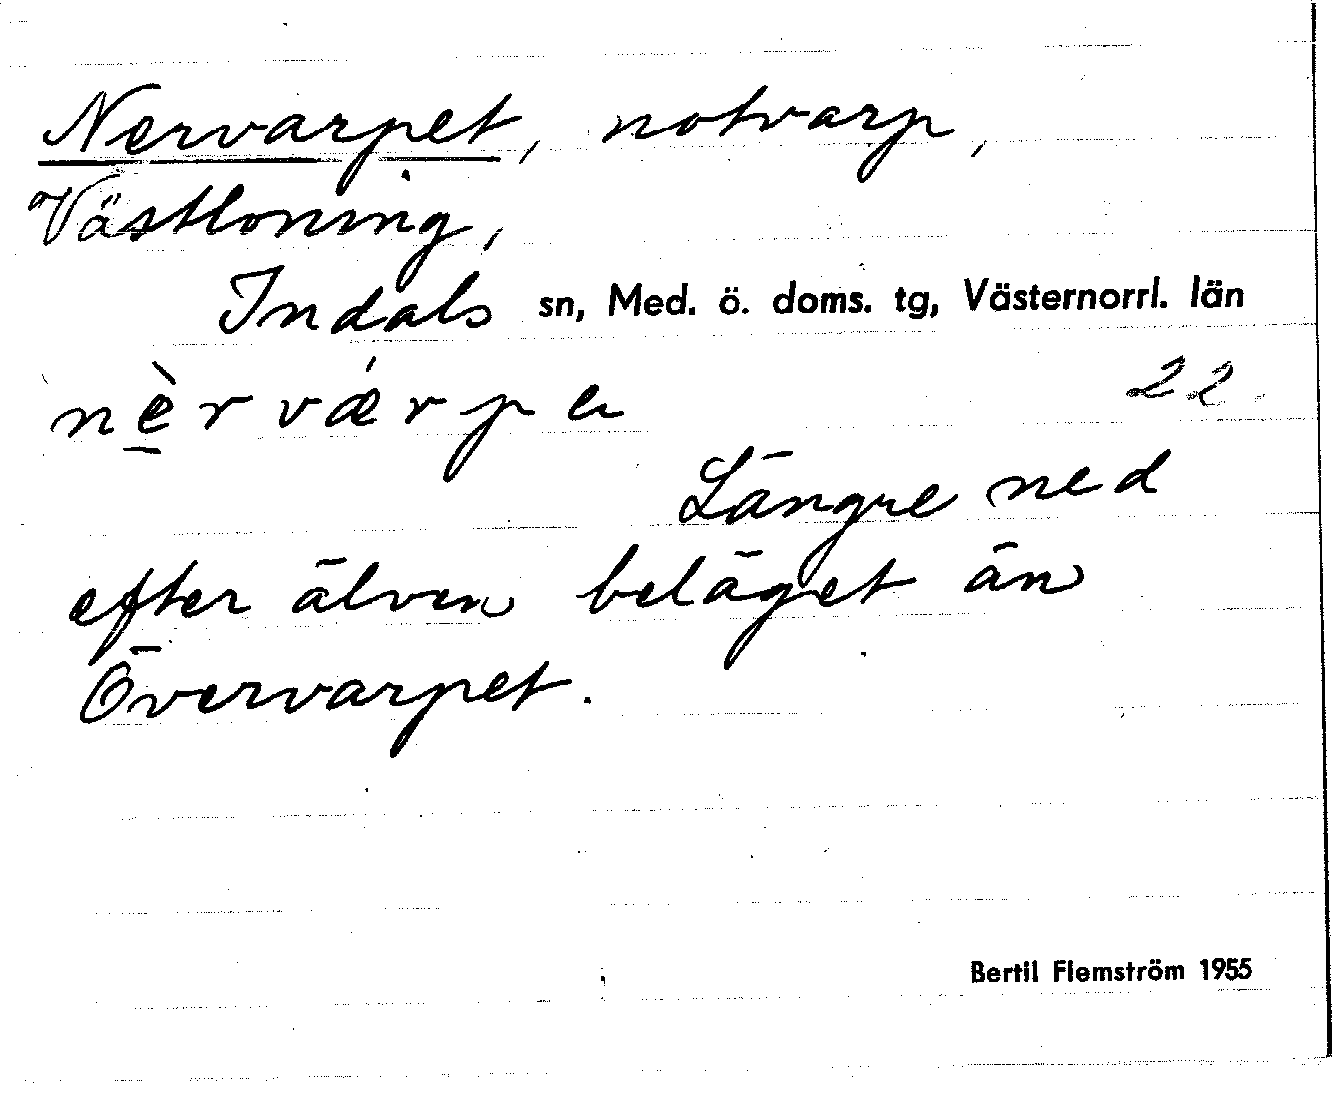 Nervarpet, notvarp,
Västloning,
Indals sn, Med. ö. doms. tg, Västernorrl. län
nè̱rvá̱rpe 22.
Längre ned
efter älven beläget än
Övervarpet.
Bertil Flemström 1955